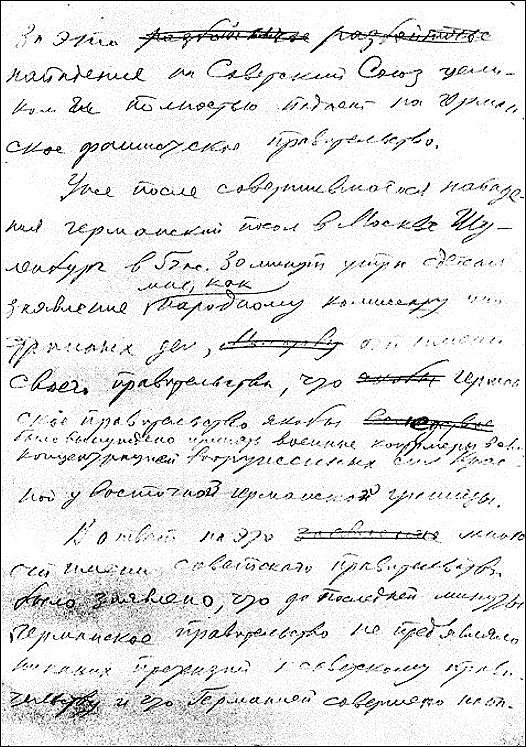 За это разбойничье разбойничье
нападение на Советский Союз цели-
ком и полностью падает на германс
ское фашистское правительство.
Уже после совершившегося нападе-
ния германский посол в Москве Шу-
ленбург в 5 час. 30 минут утра сделал
мне, как
заявление Народному комиссару ино
странных дел, Молотову от имени
своего правительства, что якобы герман
ское правительство якобы
было вынуждено принять военные контрмеры в связи
концентрацией вооруженных сил Крас
ной у восточной германской границы.
В ответ на это заявление мною
от имени советского правительства
было заявлено, что до последней минуты
Германское правительство не предъявляло
никаких претензий к советскому прави
тельству и что Германией совершено нап-